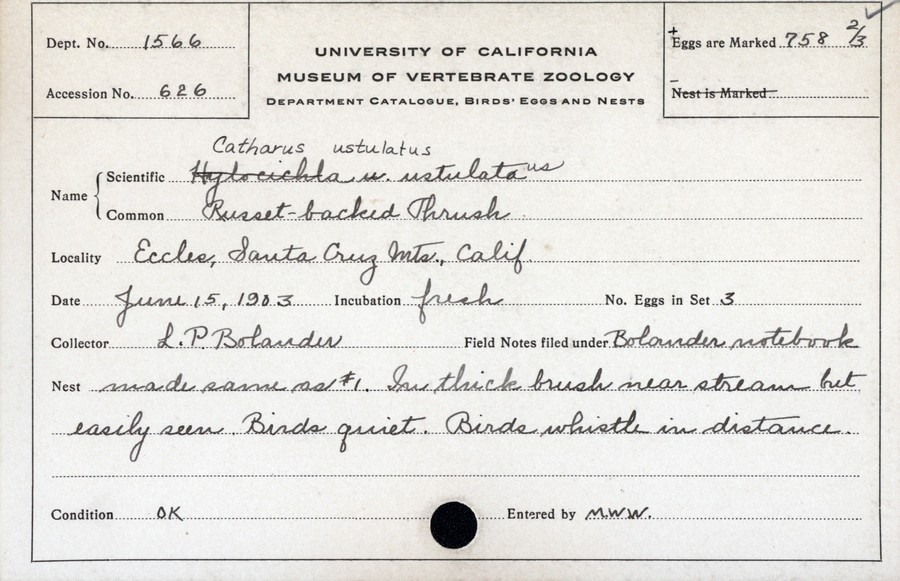 Dept. No. 1566
Accession No. 626
UNIVERSITY OF CALIFORNIA
MUSEUM OF VERTEBRATE ZOOLOGY
DEPARTMENT CATALOGUE, BIRDS' EGGS AND NESTS
+
Eggs are Marked 758 2/3
Nest is Marked
Catharus ustulatus
Name
Scientific Hylocichla u. ustulata us
Common Russet-backed Thrush
Locality Eccles, Santa Cruz Mts., Calif.
Date June 15, 1903 Incubation fresh No. Eggs in Set 3
Collector L. P. Bolander Field Notes filed under Bolander notebook
Nest made same as #1. In thick brush near stream but
easily seen. Birds quiet. Birds whistle in distance.
Condition OK Entered by M.W.W.